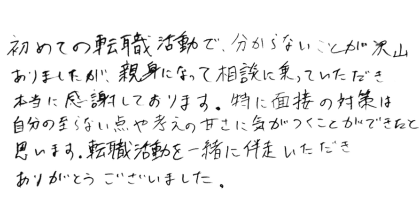 初めての転職活動で、分からないことが沢山
ありましたが、親身になって相談に乗っていただき
本当に感謝しております。特に面接の対策は
自分の至らない点や考えの甘さに気がつくことができたと
思います。転職活動を一緒に伴走いただき
ありがとうございました。